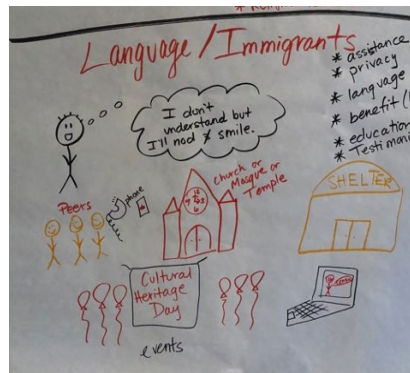 Language/Immigrants
* assistance
* privacy
* language
* benefit
* education
* Testimoni
I don't
understand but
I'll nod & smile.
Church or
Mosque or
Temple
SHELTER
Peers
phone
Cultural
Heritage
Day
events